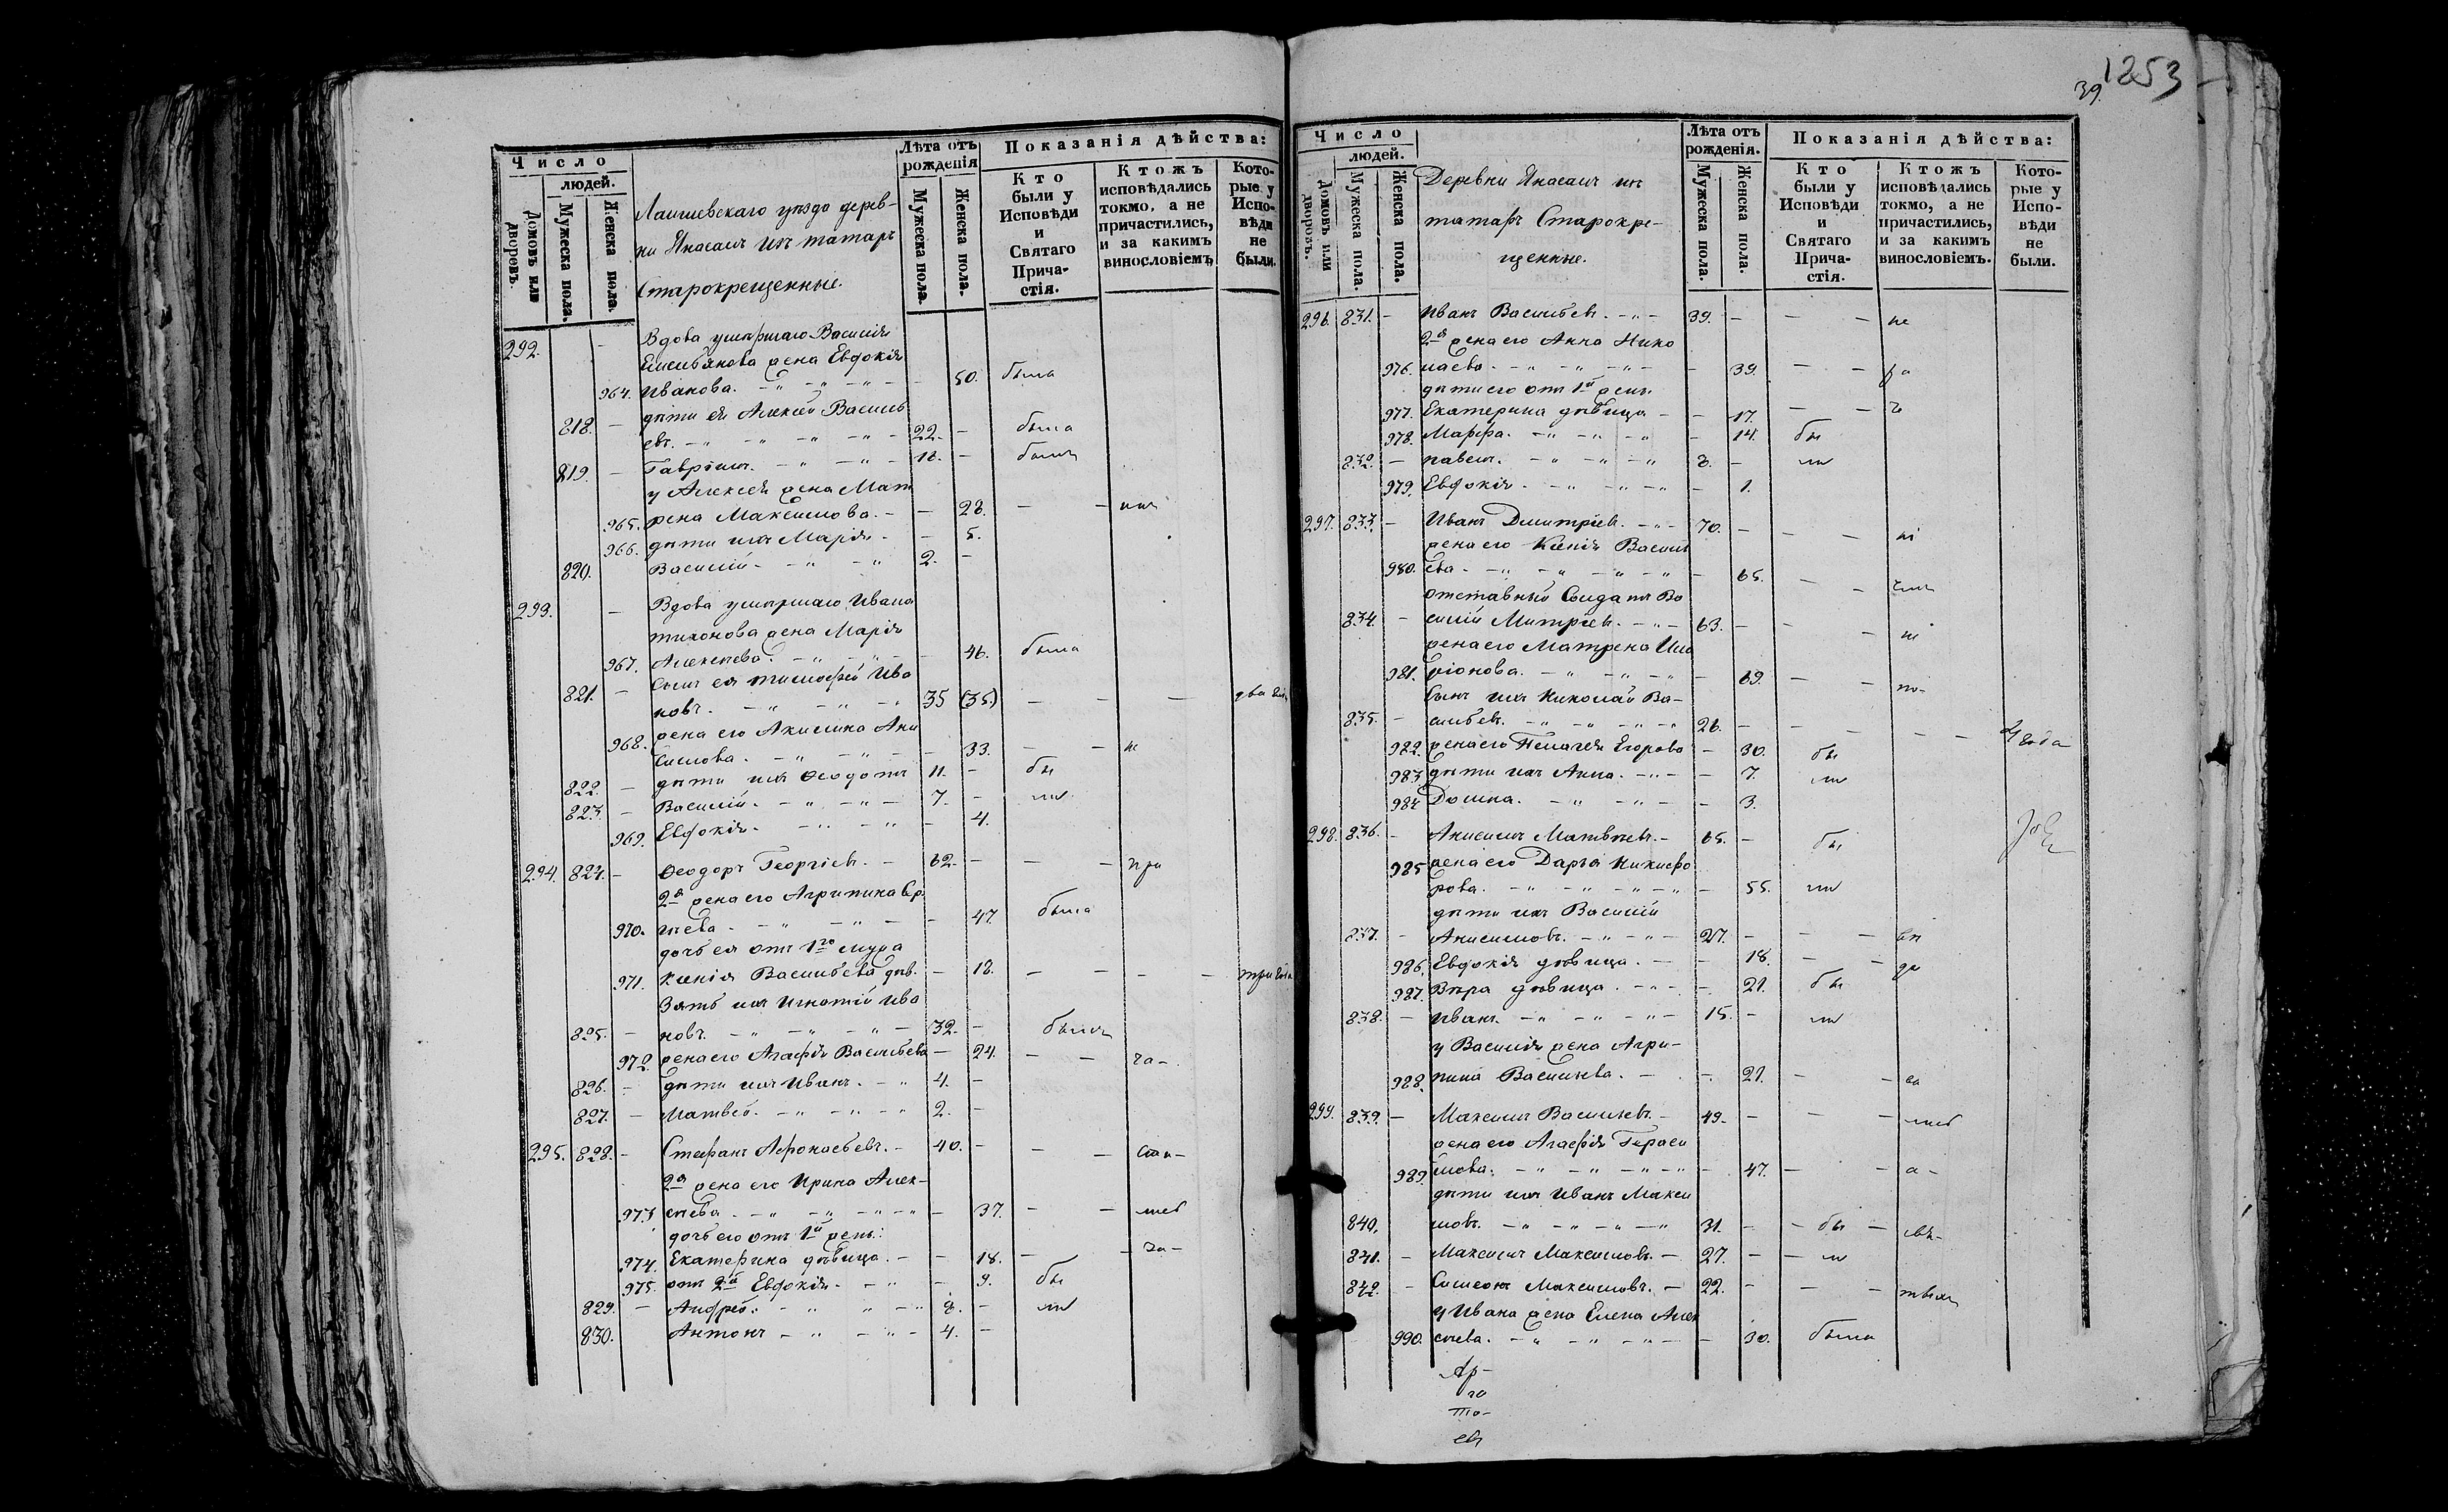 Число
людей.
Домовъ или дворевъ.
Мужеска пола.
Женска пола.
Лаишевскаго уѣзда дерев-
ни Янасалъ изъ татаръ
Старокрещенные.
Лѣта отъ
рожденія
Мужеска пола.
Женска пола.
Показанія дѣйства:
Кто
были у
Исповѣди
и
Святаго
Прича-
стія.
Ктожъ
исповѣдались
токмо, а не
причастились,
и за какимъ
винословіемъ
Кото-
рые у
Испо-
вѣди
не
были.
292. - Вдова умершаго Василія
Емельянова жена Евдокія
964. Иванова. - - 50. была
818. - дѣти ея Алексѣй Василь
евъ. - 22. - была
819. - Гавріилъ. - 18. - былъ
у Алексѣя жена Мат
965. рена Максимова. - - 28. - -
966. дѣти ихъ Марія - - 5.
820. Василій - 2. -
293. - Вдова умершаго Ивана
Тихонова жена Марія
967. Алексѣева. - - 46. была
821. - Сынъ ея Тимофей Ива
новъ. - 35 (35.) - - два года
968. жена его Акилина Ани
симова. - - 33. - - не
822. - дѣти ихъ Ѳеодотъ 11. - бы
823. - Василій. - 7. - ли
969. Евдокія. - - 4.
294. 824. - Ѳеодоръ Георгіевъ. - 62. - - - при
2я жена его Агрипина Ср
970. гѣева - - 47. была
дочь ея отъ 1го мужа
971. Ксенія Васильева дѣв. - 18. - - - - три года
Зять ихъ Игнатій Ива
825. - новъ. - 32. - былъ
972. жена его Агафія Васильева - 24. - - ча-
826. - дѣти ихъ Иванъ. - 4. -
827. - Матвей. - 2. -
295. 828. - Стефанъ Афонасьевъ. - 40. - - -
2я жена его Ирина Алек-
973. сѣева. - - 37. - -
дочь его отъ 1й жены:
974. Екатерина дѣвица. - - 18. - - за-
975. отъ 2й Евдокія. - - 9. бы
829. - Андрей. - 8. - ли
830. Антонъ - 4. -
1253
39.
Число
людей.
Домовъ или дворовъ.
Мужеска пола.
Женска пола.
Деревни Янасалъ изъ
татаръ Старокре-
щенные.
Лѣта отъ
рожденія.
Мужеска пола.
Женска пола.
Показанія дѣйства:
Кто
были у
Исповѣди
и
Святаго
Прича-
стія.
Ктожъ
исповѣдались
токмо, а не
причастились,
и за какимъ
винословіемъ.
Кото-
рые у
Испо-
вѣди
не
были.
296. 831. - Иванъ Васильевъ. - 39. - - - не
2я жена его Анна Нико
976. лаева. - - 39. - -
дѣти его отъ 1й жены
977. Екатерина дѣвица - - 17. - -
978. Марфа. - - 14. бы
832. - Павелъ. - 8. - ли
979. Евдокія. - - 1.
297. 833. - Иванъ Дмитріевъ. - 70. - - -
жена его Ксенія Василь
980. ева. - - 65. - -
отставный Солдатъ Ва
834. - силій Митріевъ. - 63. - - -
жена его Матрена Ила
981. ріонова. - - 69. - - по-
сынъ ихъ Николай Ва-
835. - сильевъ. - 26. - - - - 4 года
982. жена его Пелагея Егорова - 30. бы
983. дѣти ихъ Анна. - - 7. ли
984 Домна. - - 3.
298. 836. - Анисимъ Матвѣевъ. - 65. - бы
985 жена его Дарья Никифо
рова. - - 55. ли
дѣти ихъ Василій
837. - Анисимовъ. - 27. - - -
986. Евдокія дѣвица. - - 18. - -
987. Вѣра дѣвица. - - 21. бы
838. - Иванъ. - 15. - ли
у Василія жена Агри-
988. пина Васильева. - - 21. - -
299. 839. - Максимъ Васильевъ. - 49. - - -
жена его Агафія Гераси
989. мова. - - 47. - - а-
дѣти ихъ Иванъ Макси
840. мовъ. - 31. - - бы -
841. - Максимъ Максимовъ. - 27. - - ли
842. - Симеонъ Максимовъ. - 22. - - -
у Ивана жена Елена Алек
990. сѣева. - - 30. была
Ар-